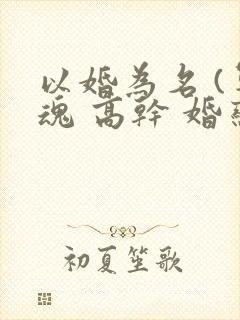 以婚為名（
魂 高幹 婚
初夏笙歌